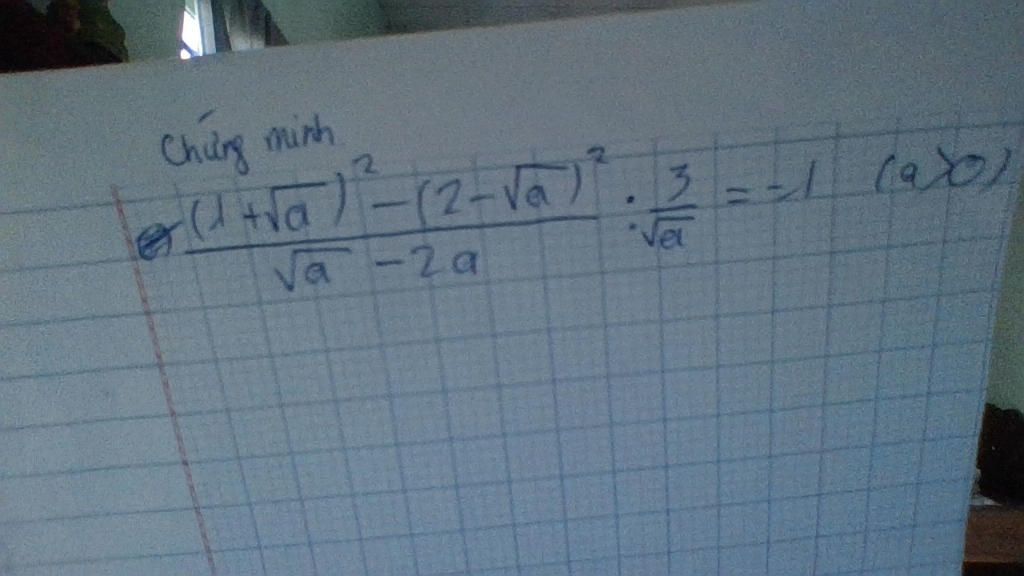 Chứng minh
\frac{(1+\sqrt{a})^2 - (2-\sqrt{a})^2}{\sqrt{a} - 2a} : \frac{3}{\sqrt{a}} = -1 (a>0)